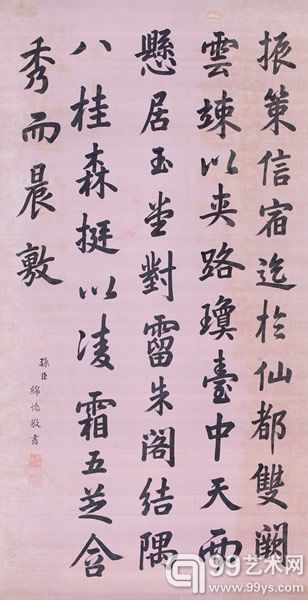 振策信宿迄於仙都雙闕
雲竦以夾路瓊臺中天而
懸居玉堂對霤朱閣結隅
八桂森挺以凌霜五芝含
秀而晨敷
孫臣 綿敬書
99艺术网
www.99ys.com